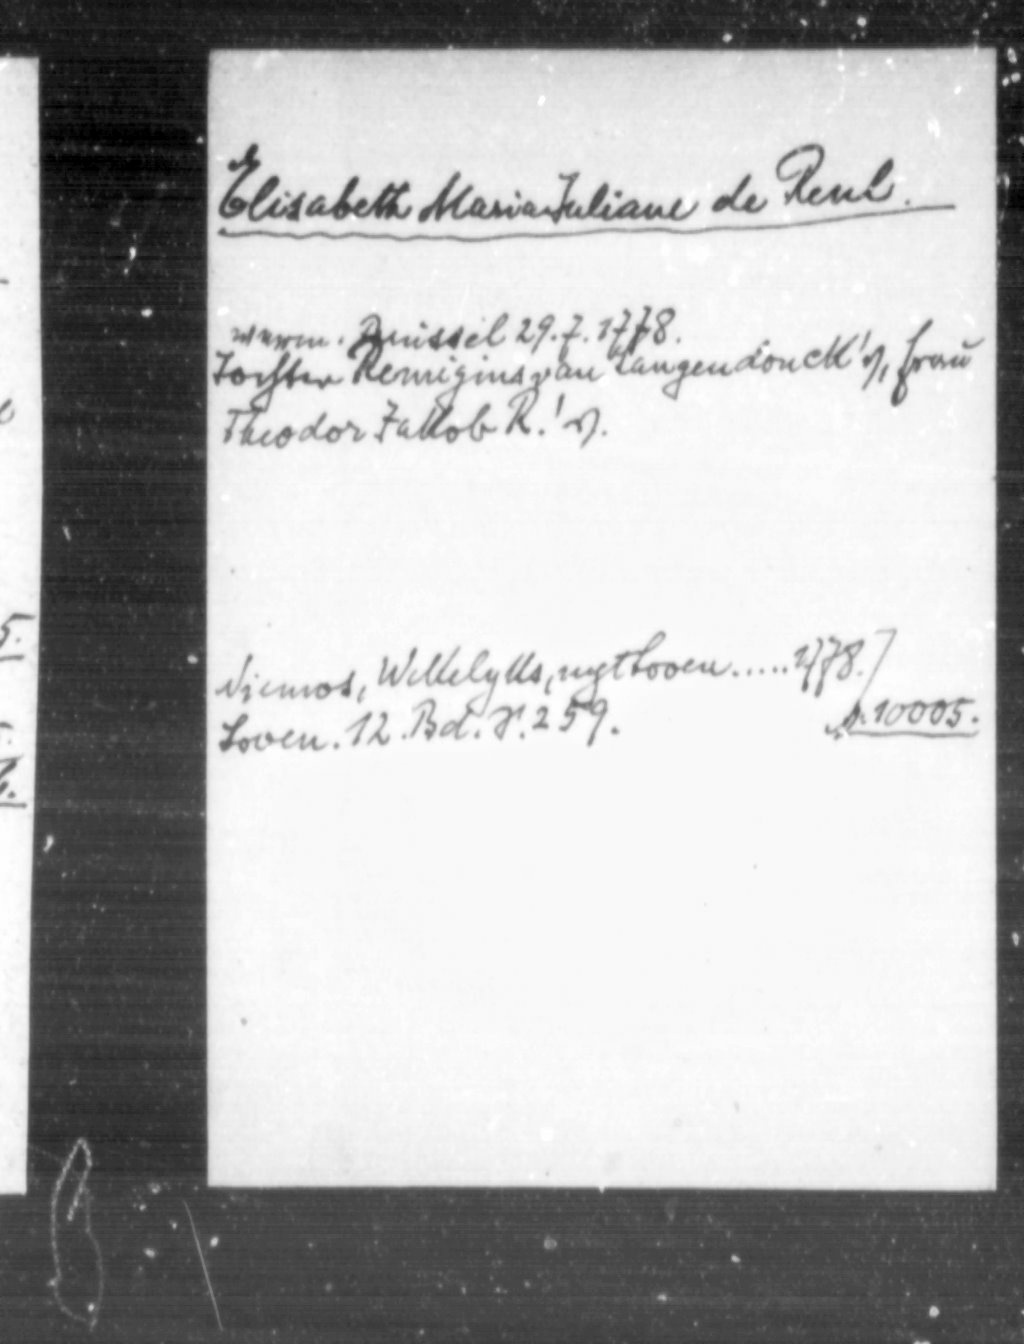 Elisabeth Maria Juliane de Reul.
verm. Brüssel 29.7.1778.
Tochter Remigius van Langendonck's, Frau
Theodor Jakob R.'s.
Niemos, Wekkelyks, nyt Loven.....1778.
Loven. 12. Bd. S. 259.
10005.